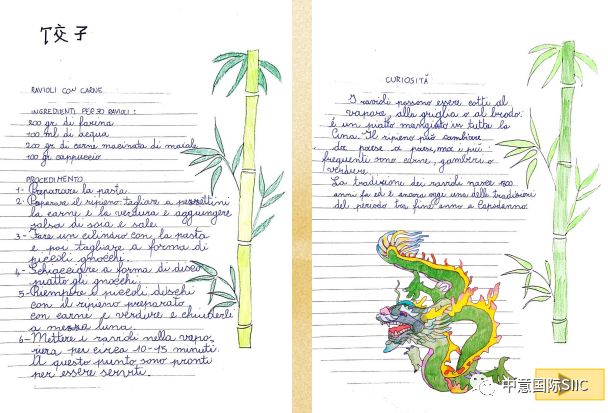 饺子
RAVIOLI CON CARNE
INGREDIENTI PER 30 RAVIOLI:
200 gr di farina
100 ml di acqua
200 gr di carne macinata di maiale
100 gr cappuccio
PROCEDIMENTO
1- Preparare la pasta.
2- Preparare il ripieno tagliare a pezzettini
la carne e la verdura e aggiungere
salsa di soia e sale
3- Fare un cilindro con la pasta
e poi tagliare a forma di
piccoli gnocchi.
4- Schiacciare a forma di disco
piatto gli gnocchi.
5- Riempire i piccoli dischi
con il ripieno preparato
con carne e verdure e chiuderli
a mezza luna.
6- Mettere i ravioli nella vapo-
riera per circa 10-15 minuti.
A questo punto sono pronti
per essere serviti.
CURIOSITÁ
I ravioli possono essere cotti al
vapore, alla griglia o al brodo:
é un piatto mangiato in tutta la
Cina. Il ripieno può cambiare
da paese a paese, ma i più
frequenti sono carne, gamberi o
verdure.
La tradizione dei ravoli nasce
anni fa ed è ancora oggi una delle tradizioni
del periodo tra fine anno e Capodanno.
中意国际SIIC